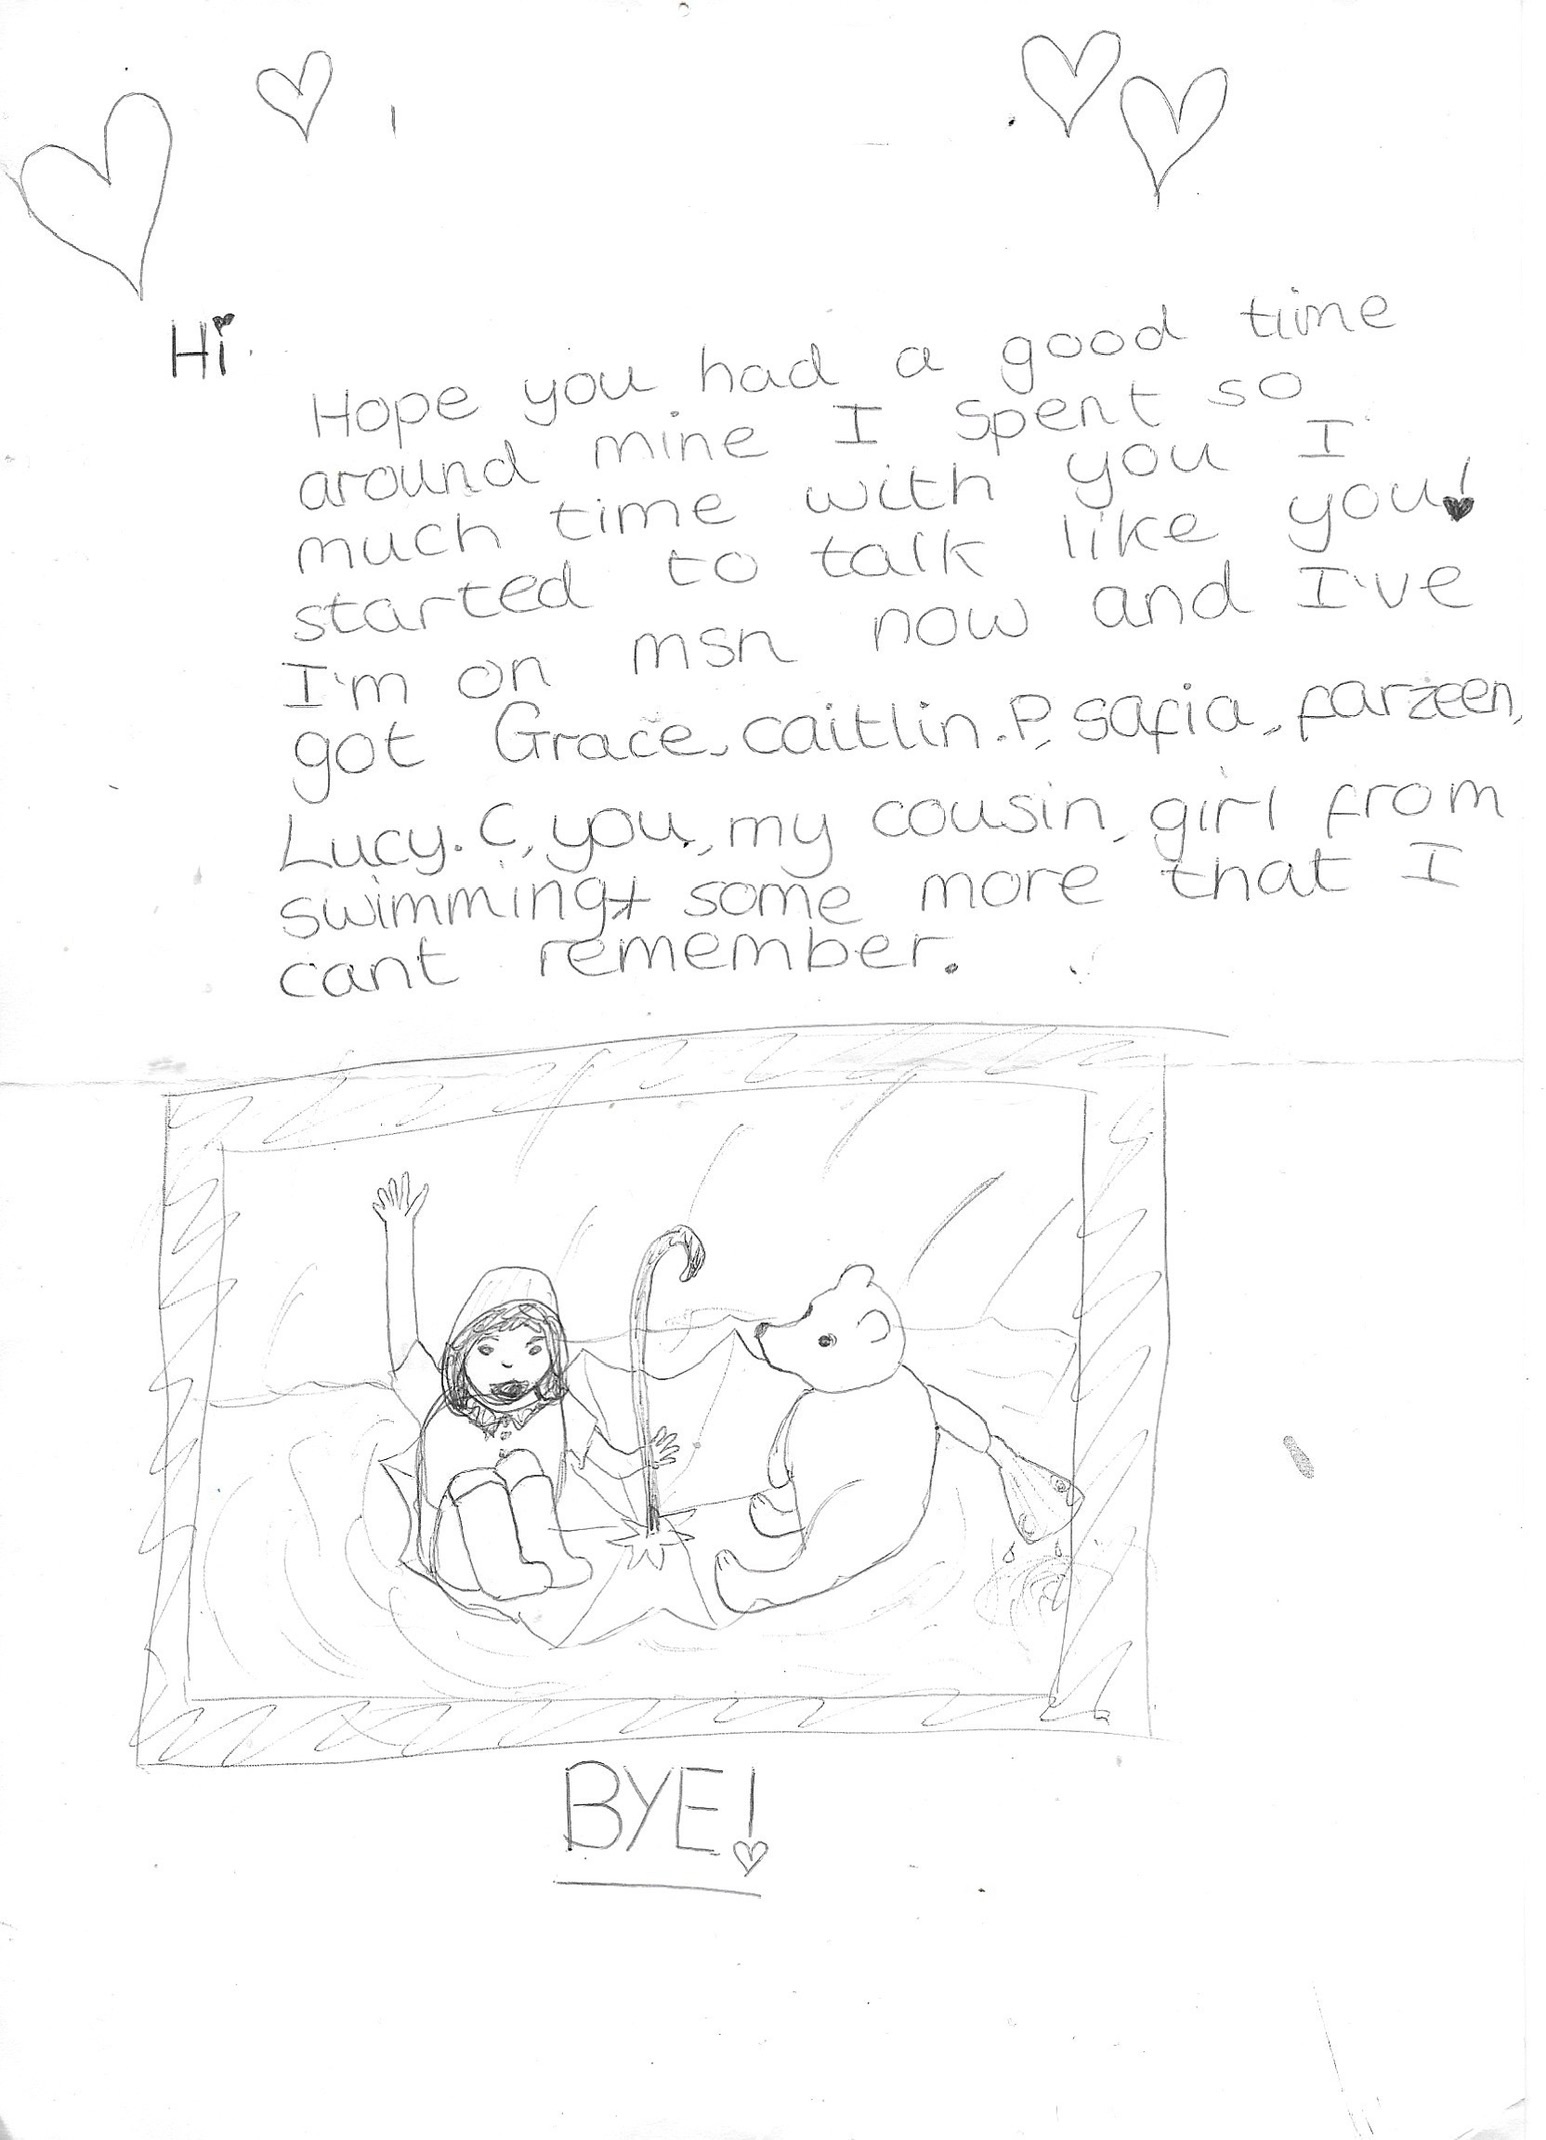 Hi
Hope you had a good time
around mine I spent so
much time with you I
started to talk like you!
I'm on msn now and I've
got Grace, caitlin.P, safia, farzeen,
Lucy.C, you, my cousin, girl from
swimming + some more that I
cant remember.
BYE!